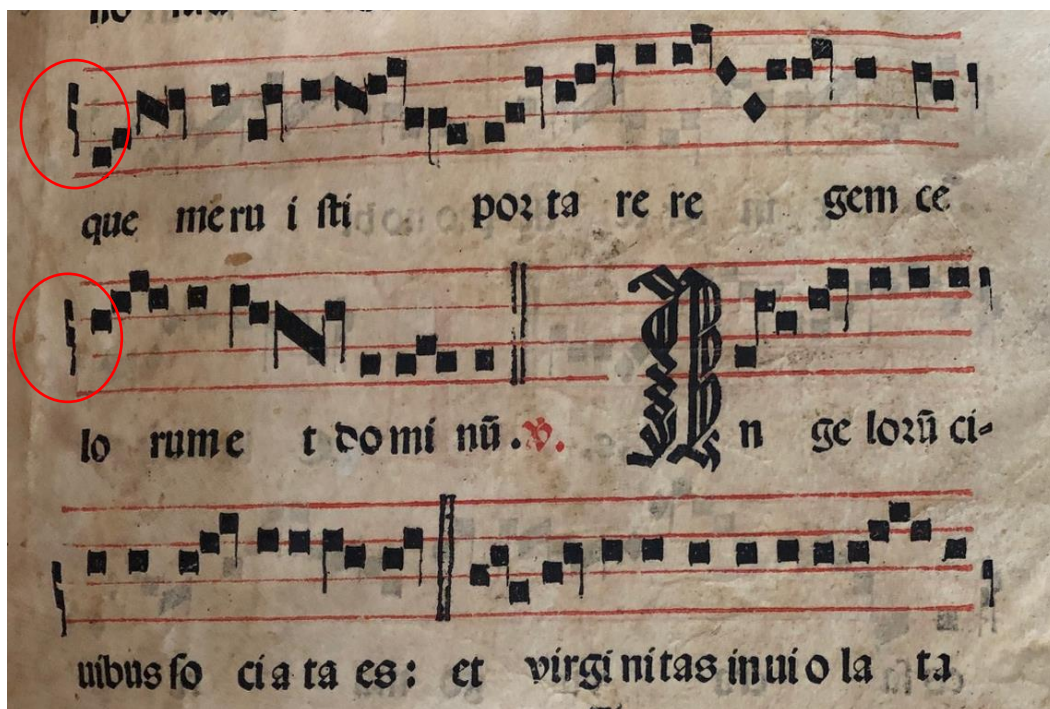 que meru i sti porta re re gem ce
lo rum e t domi nū. V. An ge lorū ci-
uibus so ci a ta es: et virgi nitas inui o la ta